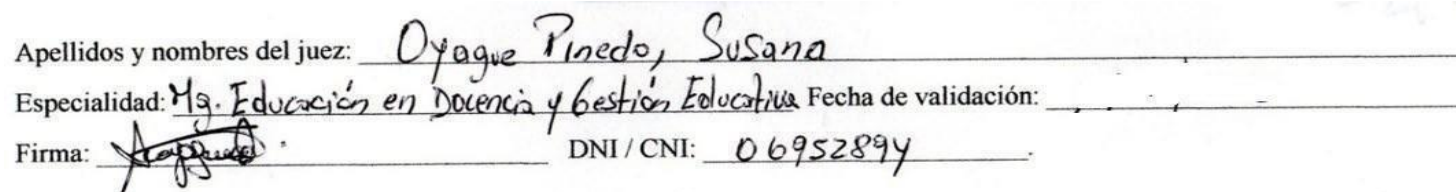 Apellidos y nombres del juez: Oyague Pinedo, Susana
Especialidad: Mg. Educación en Docencia y Gestión Educativa Fecha de validación:
Firma: DNI / CNI: 06952894